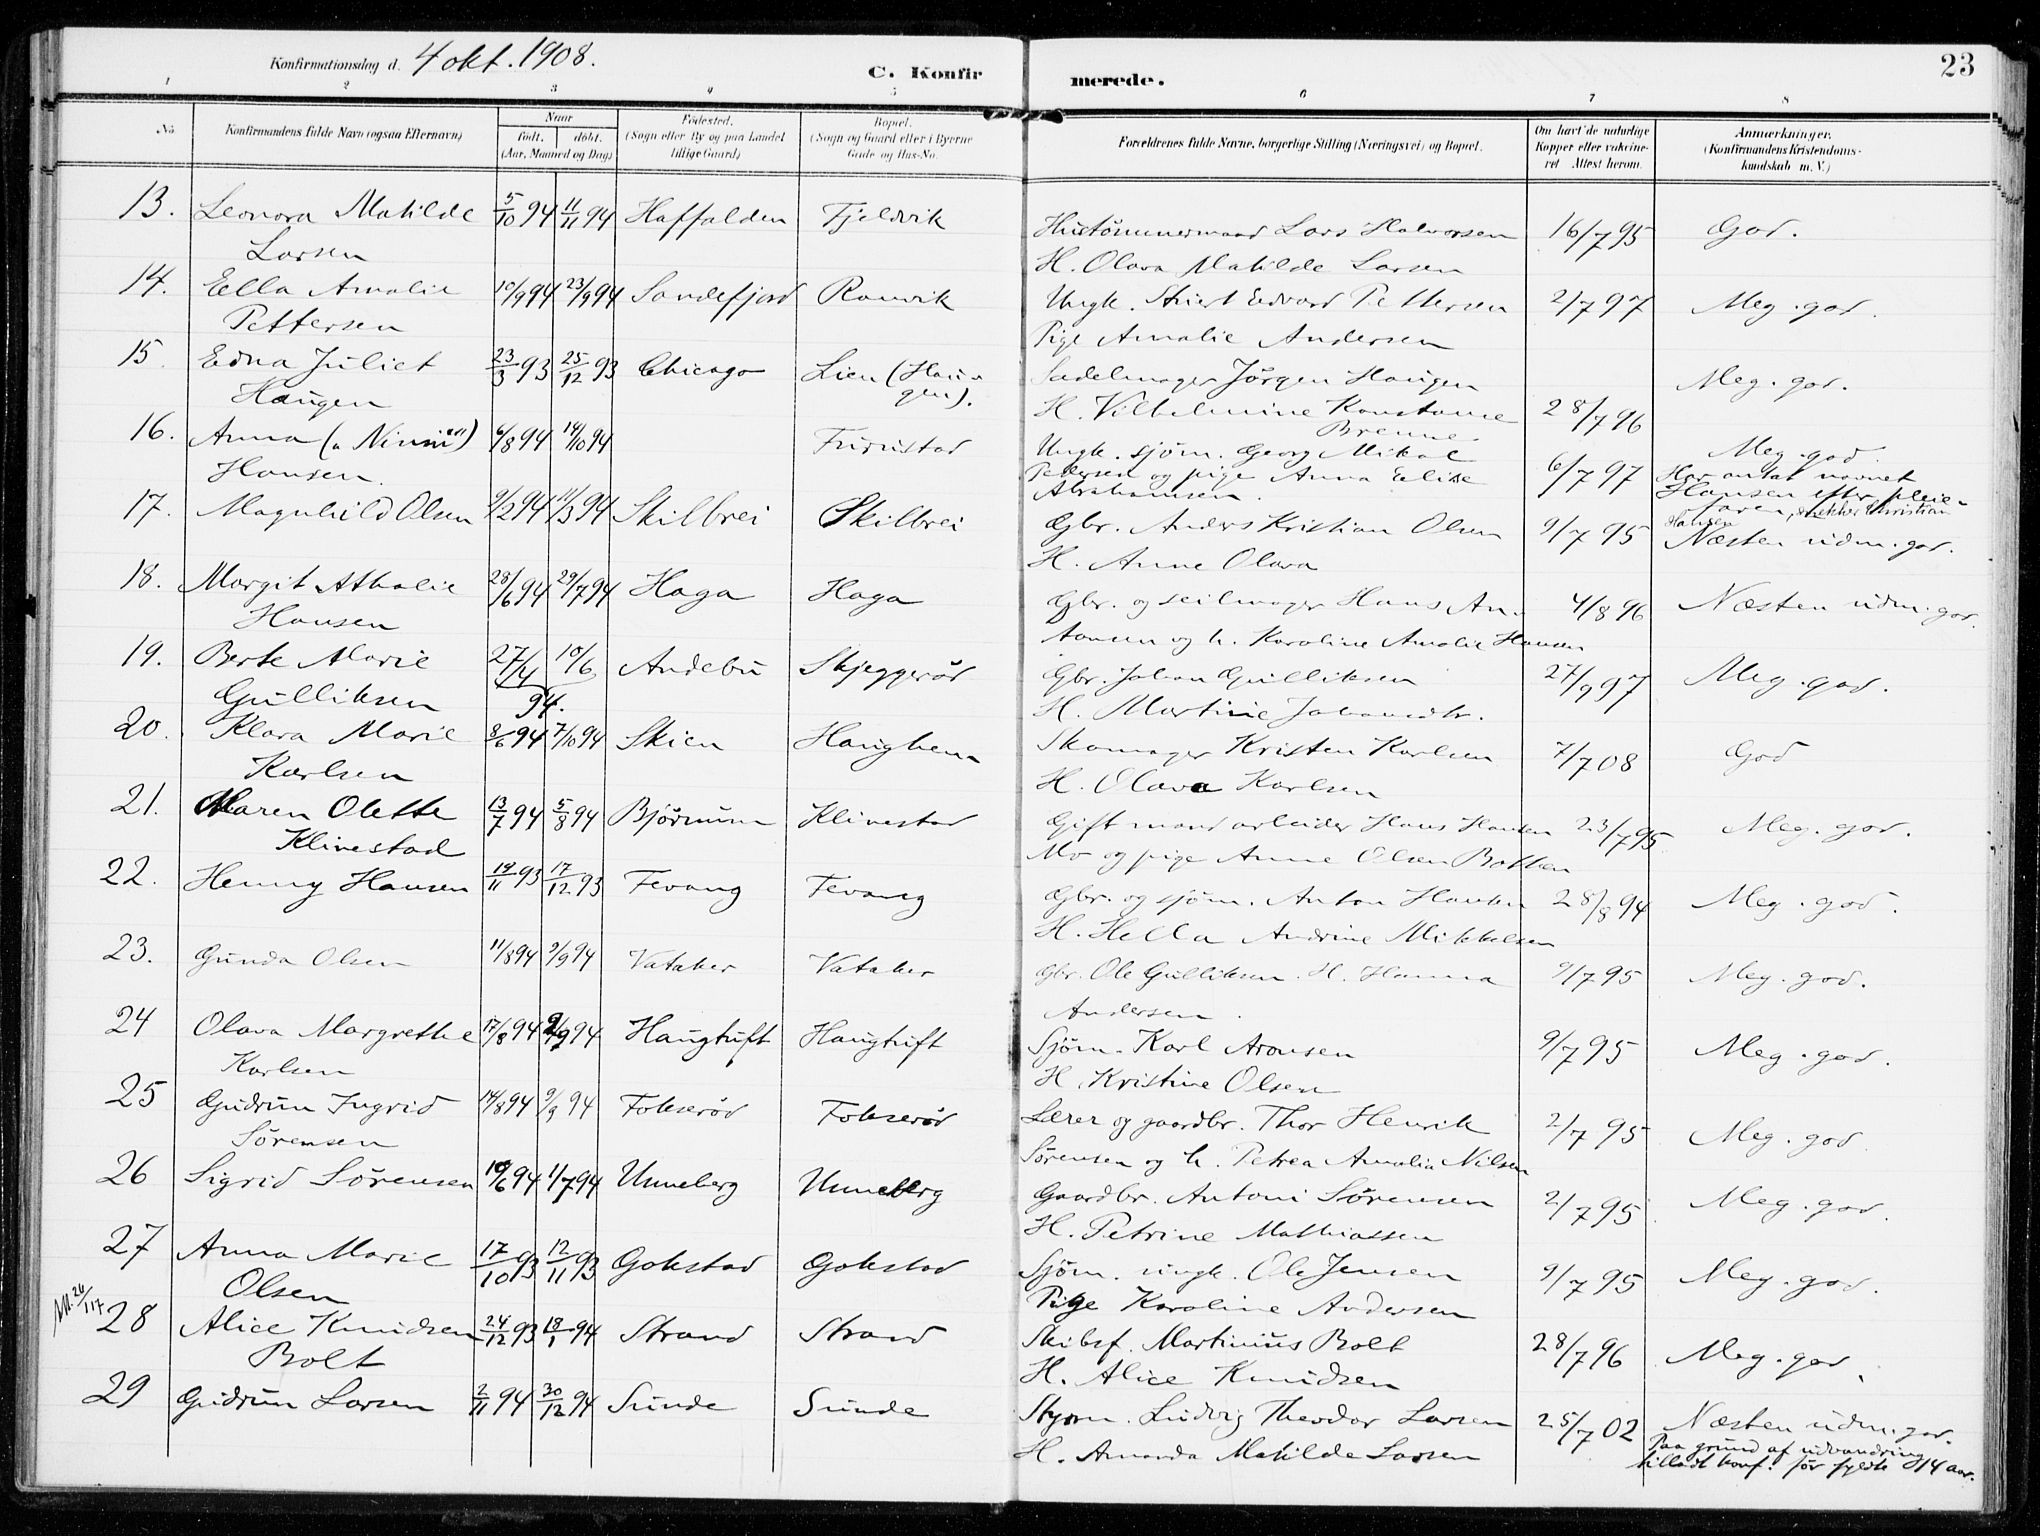 Konfirmationsdag d. 4 okt. 1908.
C. Konfirmerede.
23
1 2 3 4 5 6 7 8
No.
Konfirmandens fulde Navn (ogsaa Efternavn)
Naar
født. døbt.
(Aar, Maaned og Dag)
Fødested.
(Sogn eller By og paa Landet
tillige Gaard)
Bopæl.
(Sogn og Gaard eller i Byerne
Gade og Hus-No.
Forældrenes fulde Navne, borgerlige Stilling (Næringsvei) og Bopæl.
Om havt de naturlige
Kopper eller vaccine-
ret Attest herom.
Anmærkninger.
(Konfirmandens Kristendoms-
kundskab m. V.)
13. Leonora Matilde 5/10 94 11/11 94 Haffalden Fjeldvik Hustømmermand Lars Halvorsen 16/7 95 God.
Larsen H. Olava Matilde Larsen
14. Ella Amalie 10/9 94 23/9 94 Sandefjord Ranvik Ungk. Edvard Pettersen 2/7 97 Meg. god.
Pettersen Pige Amalie Andersen
15. Edna Juliet 23/3 93 25/12 93 Chicago Lien (Hau- Sadelmager Jörgen Haugen Meg. god.
Haugen gen). H. Vilhelmine Konstanse 28/7 96
Brenne
16. Anna („Ninni") 6/8 94 14/10 94 Furustad Ungk. sjøm. Georg Mikal Meg. god.
Hansen. Pedersen og pige Anna Elise 6/7 97 Har antat navnet
Abrahamsen. Hansen efter pleie-
faren, Kristian
Hansen
17. Magnhild Olsen 9/2 94 11/3 94 Skilbrei Skilbrei Gbr. Anders Kristian Olsen 9/7 95 Næsten udm. god.
H. Anne Olava
18. Margit Athalie 28/6 94 29/7 94 Haga Haga Gbr. og seilmager Hans An- 4/8 96 Næsten udm. god.
Hansen tonsen og h. Karoline Amalie Hansen
19. Berte Marie 27/4 10/6 Andebu Skjeggerød Gbr. Johan Gulliksen 27/9 97 Meg. god.
Gulliksen 94. H. Martine Johansdtr.
20. Klara Marie 8/6 94 7/10 94 Skien Haughem Skomager Kristen Karlsen 7/7 08 God
Karlsen H. Olava Karlsen
21. Maren Olette 13/7 94 5/8 94 Bjørnum Klinestad Gift mand arbeider Hans Hansen 23/7 95 Meg. god.
Klinestad Mo og pige Anne Olsen Botten
22. Henny Hansen 19/11 93 17/12 93 Fevang Fevang Gbr. og sjøm. Anton Hansen 28/8 94 Meg. god.
H. Hella Andrine Mikkelsen
23. Gunda Olsen 11/8 94 9/9 94 Vataker Vataker Gbr. Ole Gulliksen. H. Hanna 9/7 95 Meg. god.
Andersen.
24 Olava Margrethe 17/8 94 2/9 94 Haugtuft Haugtuft Sjøm. Karl Aronsen 9/7 95 Meg. god.
Karlsen H. Kristine Olsen
25 Gudrun Ingrid 14/8 94 9/9 94 Fokserød Fokserød Lærer og gaardbr. Thor Henrik 2/7 95 Meg. god
Sørensen Sørensen og h. Petrea Amalia Nilsen
26 Sigrid Sørensen 10/6 94 1/7 94 Unneberg Unneberg Gaardbr. Antoni Sørensen 2/7 95 Meg. god.
H. Petrine Mathiassen
27 Anna Marie 17/10 93 12/11 93 Gokstad Gokstad Sjøm. ungk. Ole Jensen 9/7 95 Meg. god.
Olsen Pige Karoline Andersen
28 Alice Knudsen 24/12 93 18/1 94 Strand Strand Skibsf. Martinius Bolt 28/7 96 Meg. god.
Bolt H. Alice Knudsen
29 Gudrun Larsen 2/11 94 30/12 94 Sunde Sunde Styrm. Ludvig Theodor Larsen 25/7 02 Næsten udm. god.
H. Amanda Matilde Larsen Paa grund af udvandring
tilladt konf. før fyldte 14 aar.